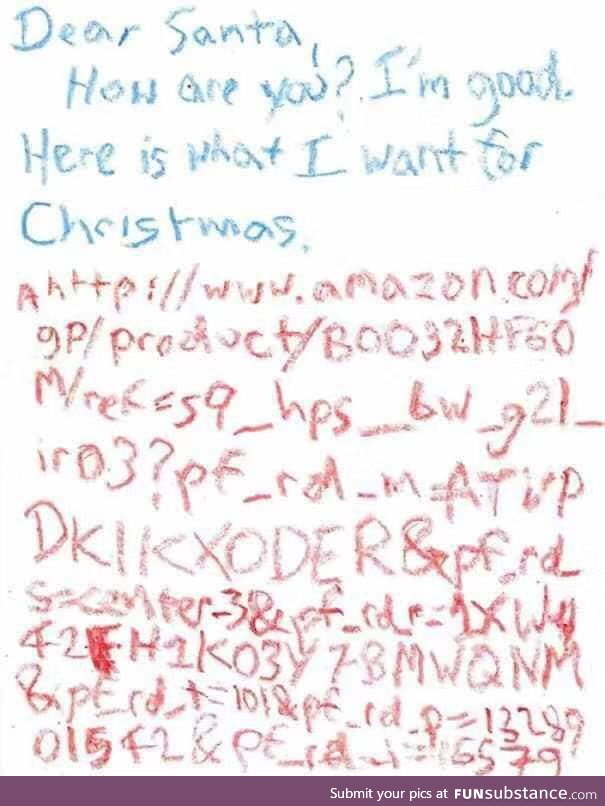 Dear Santa,
How are you? I'm good.
Here is what I want for
Christmas.
A http://www.amazon.com/
gp/product/B0032HF60
M/ref=s9_hps_bw_g21_
ir03?pf_rd_m=ATVP
DKIKX0DER&pf_rd_
s=center-3&pf_rd_r=1XWY
42FH1K03Y78MWQNM
&pf_rd_t=101&pf_rd_p=13289
01542&pf_rd_i=16579
Submit your pics at FUNsubstance.com